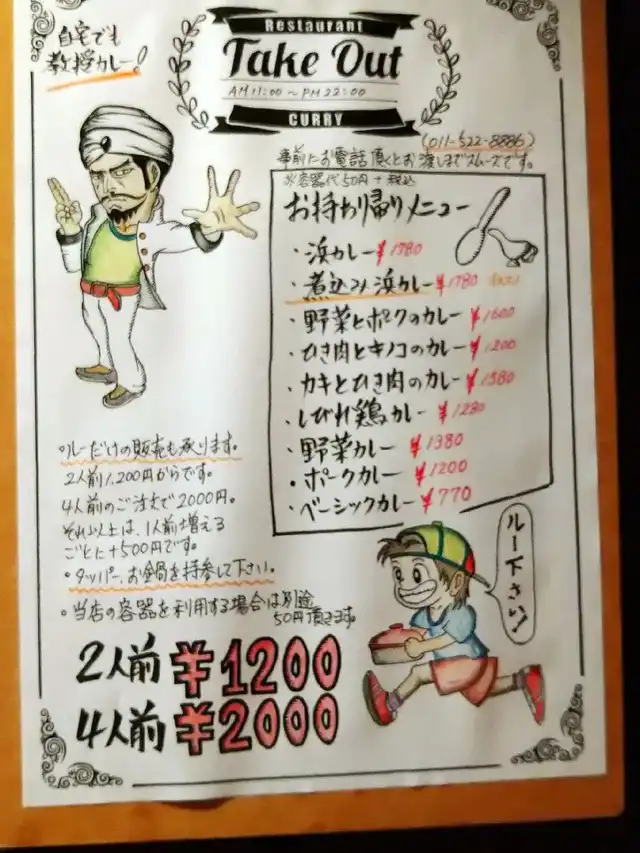 自宅でも
教授カレー!
Restaurant
Take Out
AM 11:00 ~ PM 22:00
CURRY
(011-522-8886)
事前にお電話頂くとお渡しまでスムーズです。
※容器代50円+税込
お持ち帰りメニュー
・浜カレー ¥1780
・煮込み浜カレー ¥1780
・野菜とポークのカレー ¥1600
・ひき肉とキノコのカレー ¥1200
・カキとひき肉のカレー ¥1580
・しびれ鶏カレー ¥1280
・野菜カレー ¥1380
・ポークカレー ¥1200
・ベーシックカレー ¥770
・ルーだけの販売も承ります。
2人前1,200円からです。
4人前のご注文で2000円。
それ以上は、1人前増える
ごとに+500円です。
・タッパー、お全鍋を持参して下さい。
・当店の容器を利用する場合は別途
50円頂きます。
ルー下さい!
2人前 ¥1200
4人前 ¥2000